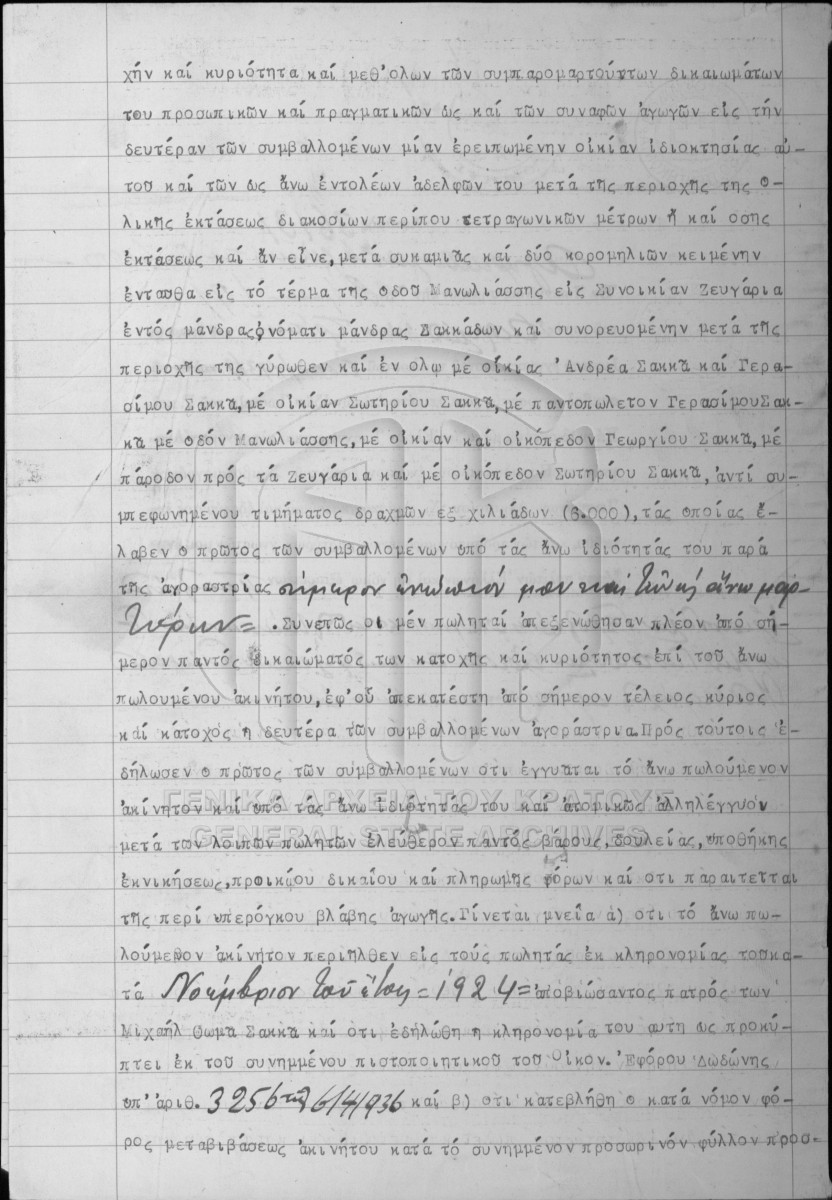 χήν καί κυριότητα καί μεθ'ολων τῶν συμπαρομαρτούντων δικαιωμάτων
του προσωπικῶν καί πραγματικῶν ὡς καί τῶν συναφῶν ἀγωγῶν εἰς τήν
δευτέραν τῶν συμβαλλομένων μίαν ἐρειπωμένην οἰκίαν ἰδιοκτησίας αὐ-
τοῦ καί τῶν ὡς ἄνω ἐντολέων ἀδελφῶν του μετά τῆς περιοχῆς της ο-
λικῆς ἐκτάσεως διακοσίων περίπου τετραγωνικῶν μέτρων ἤ καί οσης
ἐκτάσεως καί ἄν εἶνε, μετά συκαμιᾶς καί δύο κορομηλιῶν κειμένην
ἐνταῦθα εἰς τό τέρμα τῆς οδοῦ Μανωλιάσσης εἰς Συνοικίαν Ζευγάρια
ἐντός μάνδρας ὀνόματι μάνδρας Σακκάδων καί συνορευομένην μετά τῆς
περιοχῆς της γύρωθεν καί ἐν ολῳ μέ οἰκίας 'Ανδρέα Σακκᾶ καί Γερα-
σίμου Σακκᾶ, μέ οἰκίαν Σωτηρίου Σακκᾶ, μέ παντοπωλεῖον Γερασίμου Σακ-
κᾶ μέ οδόν Μανωλιάσσης, μέ οἰκίαν καί οἰκόπεδον Γεωργίου Σακκᾶ, μέ
πάροδον πρός τά Ζευγάρια καί μέ οἰκόπεδον Σωτηρίου Σακκᾶ, ἀντί συ-
μπεφωνημένου τιμήματος δραχμῶν εξ χιλιάδων (6.000), τάς οποίας ἔ-
λαβεν ο πρῶτος τῶν συμβαλλομένων υπό τάς ἄνω ἰδιότητάς του παρά
τῆς ἀγοραστρίας σήμερον ἐνώπιόν μου καί τῶν ἄνω μαρ-
τύρων= . Συνεπῶς οι μέν πωληταί ἀπεξενώθησαν πλέον ἀπό σή-
μερον παντός δικαιώματός των κατοχῆς καί κυριότητος ἐπί τοῦ ἄνω
πωλουμένου ἀκινήτου, ἐφ'οὗ ἀπεκατέστη ἀπό σήμερον τέλειος κύριος
καί κάτοχος η δευτέρα τῶν συμβαλλομένων ἀγοράστρια. Πρός τούτοις ἐ-
δήλωσεν ο πρῶτος τῶν συμβαλλομένων οτι ἐγγυᾶται τό ἄνω πωλούμενον
ἀκίνητον καί υπό τάς ἄνω ἰδιότητάς του καί ἀτομικῶς ἀλληλέγγυον
ΓΕΝΙΚΑ ΑΡΧΕΙΑ ΤΟΥ ΚΡΑΤΟΥΣ
μετά τῶν λοιπῶν πωλητῶν ἐλεύθερον παντός βάρους, δουλείας, υποθήκης
GENERAL STATE ARCHIVES
ἐκνικήσεως, προικῴου δικαίου καί πληρωμῆς φόρων καί οτι παραιτεῖται
τῆς περί υπερόγκου βλάβης ἀγωγῆς. Γίνεται μνεία α) οτι τό ἄνω πω-
λούμενον ἀκίνητον περιῆλθεν εἰς τούς πωλητάς ἐκ κληρονομίας τοῦ κα-
τά Νοέμβριον τοῦ ἔτους = 1924 = ἀποβιώσαντος πατρός των
Μιχαήλ Θωμᾶ Σακκᾶ καί οτι ἐδηλώθη η κληρονομία του αυτη ως προκύ-
πτει ἐκ τοῦ συνημμένου πιστοποιητικοῦ τοῦ Οἰκον. 'Εφόρου Δωδώνης
υπ' ἀριθ. 3256 τῆς 6/4/936 καί β) οτι κατεβλήθη ο κατά νόμον φό-
ρος μεταβιβάσεως ἀκινήτου κατά τό συνημμένον προσωρινόν φύλλον προσ-